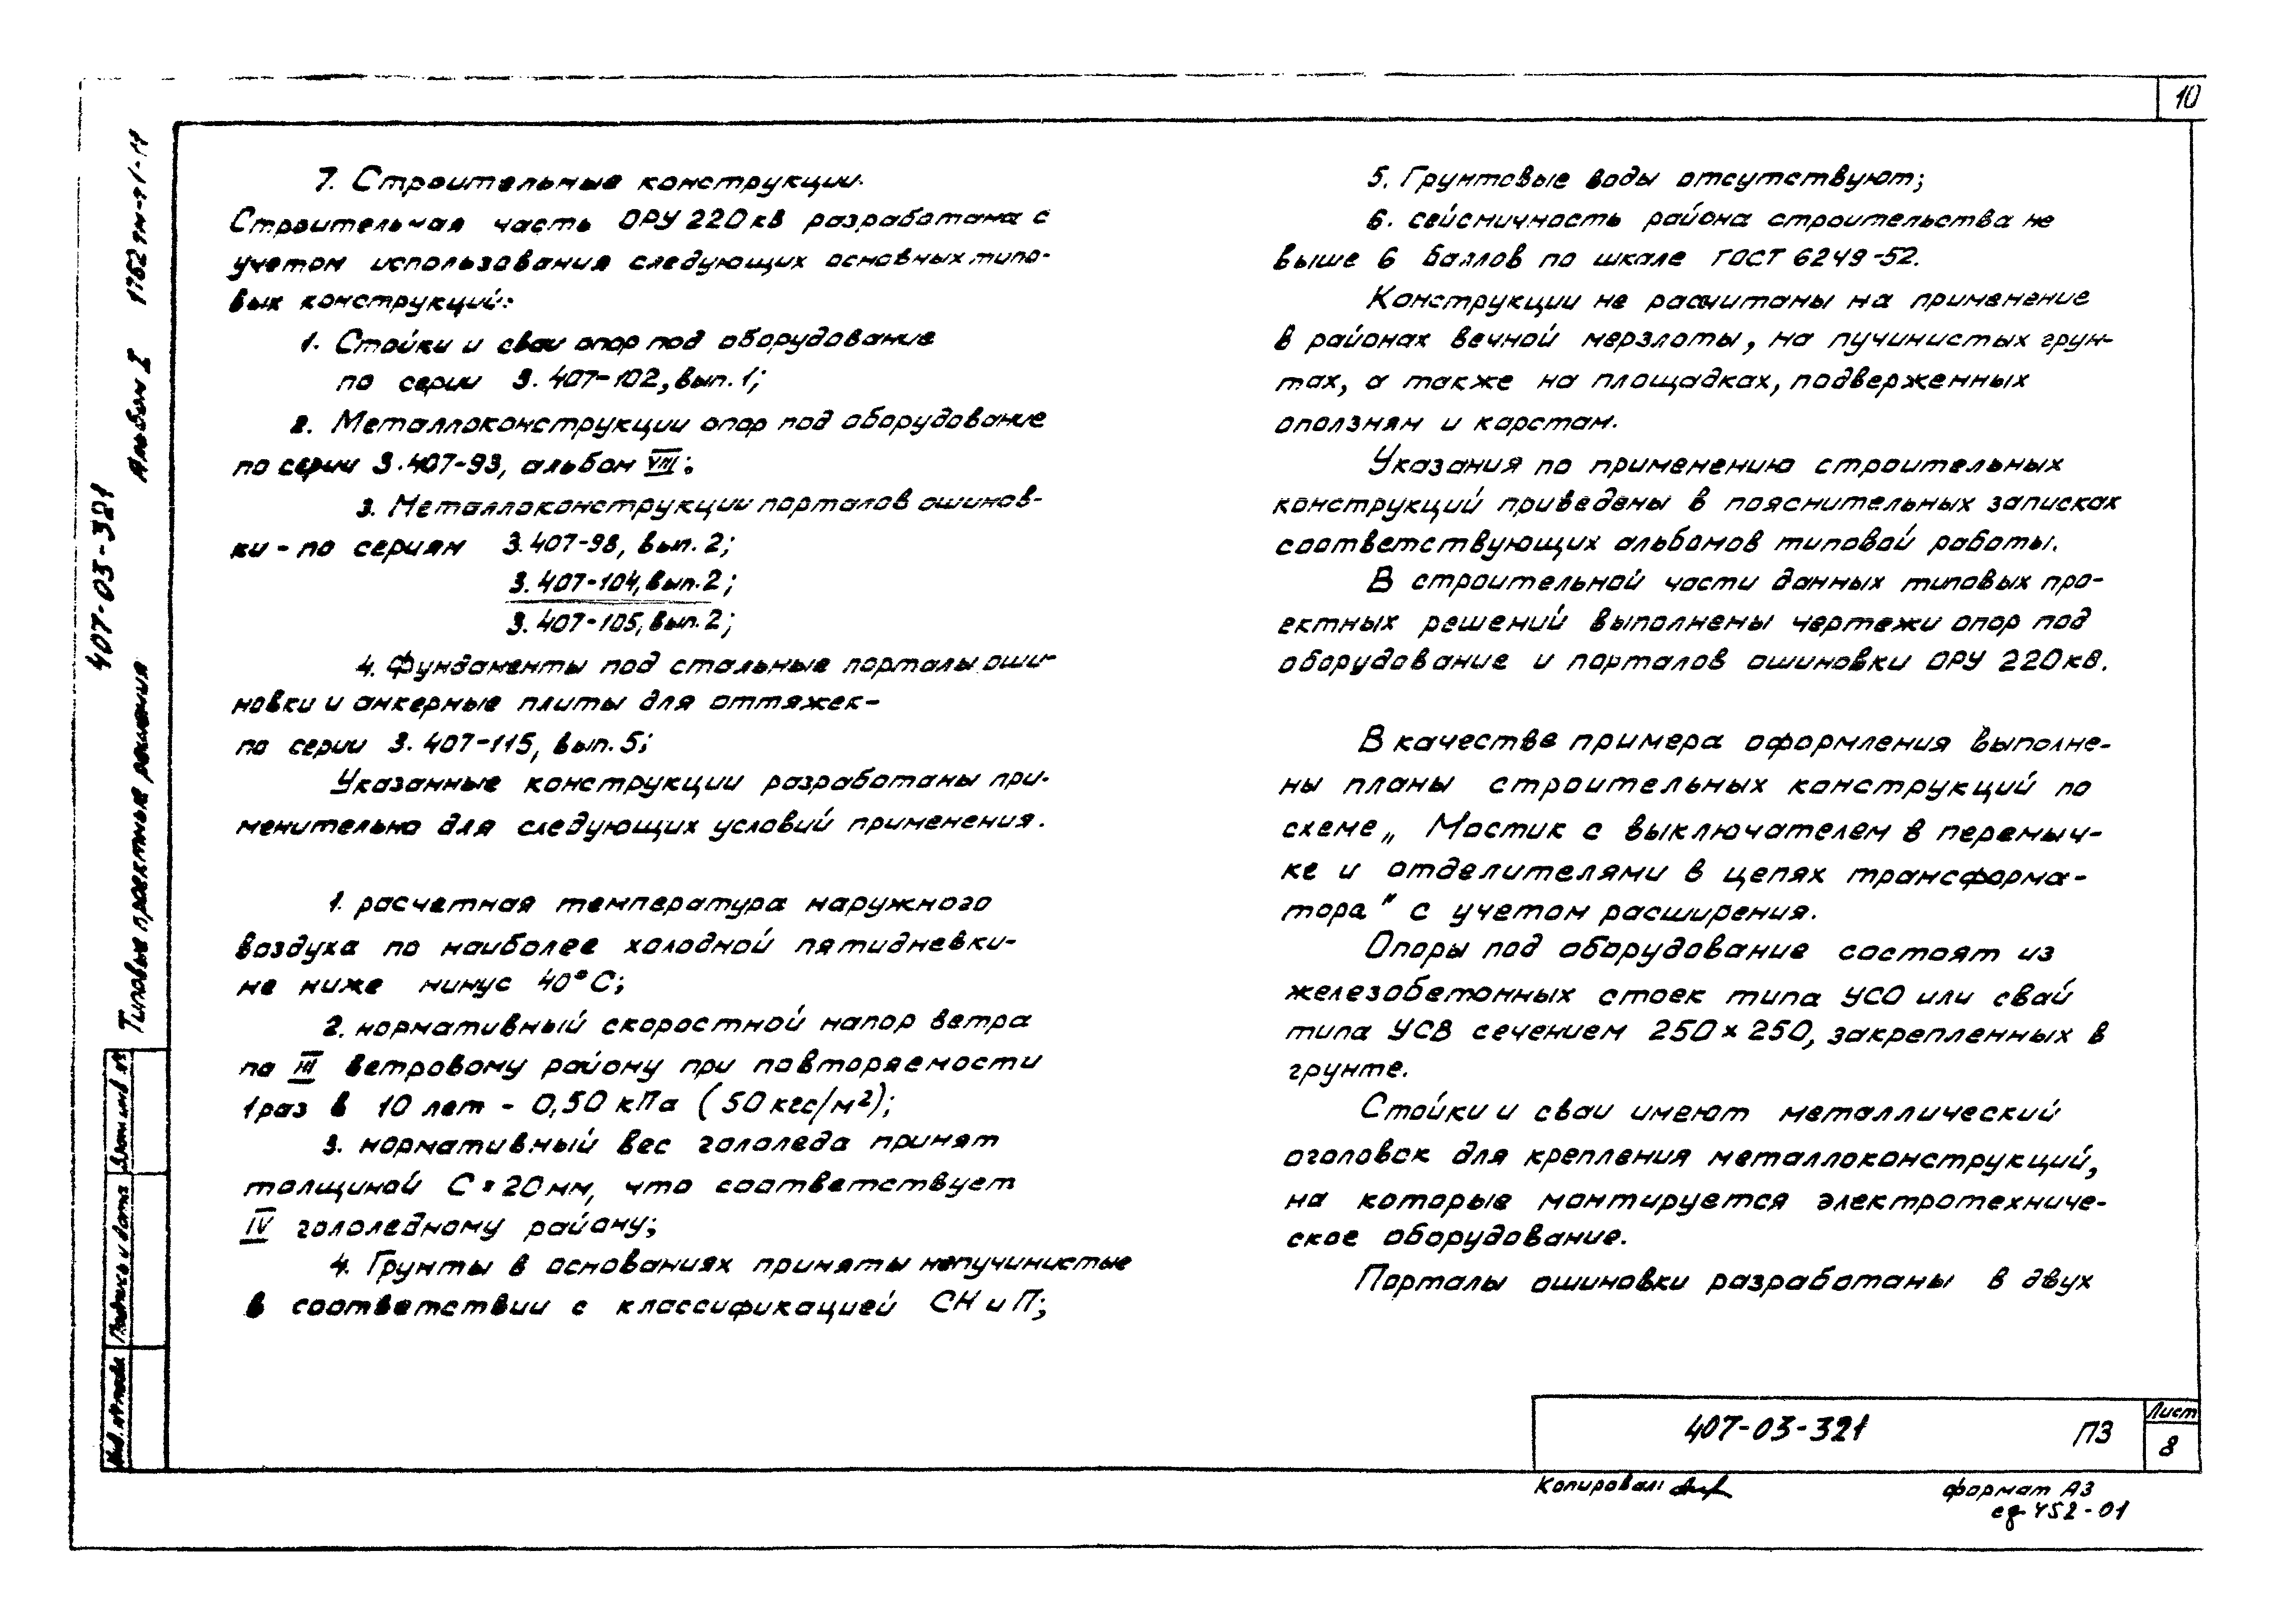 10
7. Строительные конструкции.
Строительная часть ОРУ 220кВ разработана с
учетом использования следующих основных типо-
вых конструкций:
1. Стойки и сваи опор под оборудование
по серии 3.407-102, вып. 1;
2. Металлоконструкции опор под оборудование
по серии 3.407-93, альбом VIII;
3. Металлоконструкции порталов ошинов-
ки - по сериям 3.407-98, вып. 2;
3.407-104, вып. 2;
3.407-105, вып. 2;
4. Фундаменты под стальные порталы оши-
новки и анкерные плиты для оттяжек-
по серии 3.407-115, вып. 5;
Указанные конструкции разработаны при-
менительно для следующих условий применения.
1. расчетная температура наружного
воздуха по наиболее холодной пятидневки-
не ниже минус 40°С;
2. нормативный скоростной напор ветра
по III ветровому району при повторяемости
1 раз в 10 лет - 0,50 кПа (50 кгс/м²);
3. нормативный вес гололеда принят
толщиной С=20мм, что соответствует
IV гололедному району;
4. Грунты в основаниях приняты непучинистые
в соответствии с классификацией СН и П;
5. Грунтовые воды отсутствуют;
6. сейсмичность района строительства не
выше 6 баллов по шкале ГОСТ 6249-52.
Конструкции не расчитаны на применение
в районах вечной мерзлоты, на пучинистых грун-
тах, а также на площадках, подверженных
оползням и карстам.
Указания по применению строительных
конструкций приведены в пояснительных записках
соответствующих альбомов типовой работы.
В строительной части данных типовых про-
ектных решений выполнены чертежи опор под
оборудование и порталов ошиновки ОРУ 220кВ.
В качестве примера оформления выполне-
ны планы строительных конструкций по
схеме „Мостик с выключателем в перемыч-
ке и отделителями в цепях трансформа-
тора" с учетом расширения.
Опоры под оборудование состоят из
железобетонных стоек типа УСО или свай
типа УСВ сечением 250×250, закрепленных в
грунте.
Стойки и сваи имеют металлический
оголовок для крепления металлоконструкций,
на которые монтируется электротехниче-
ское оборудование.
Порталы ошиновки разработаны в двух
407-03-321 ПЗ
Лист
8
Копировал:
формат А3
407-03-321
Типовые проектные решения Альбом I 1762тм-т1-11
Взам инв №
Подпись и дата
Инв. № подл